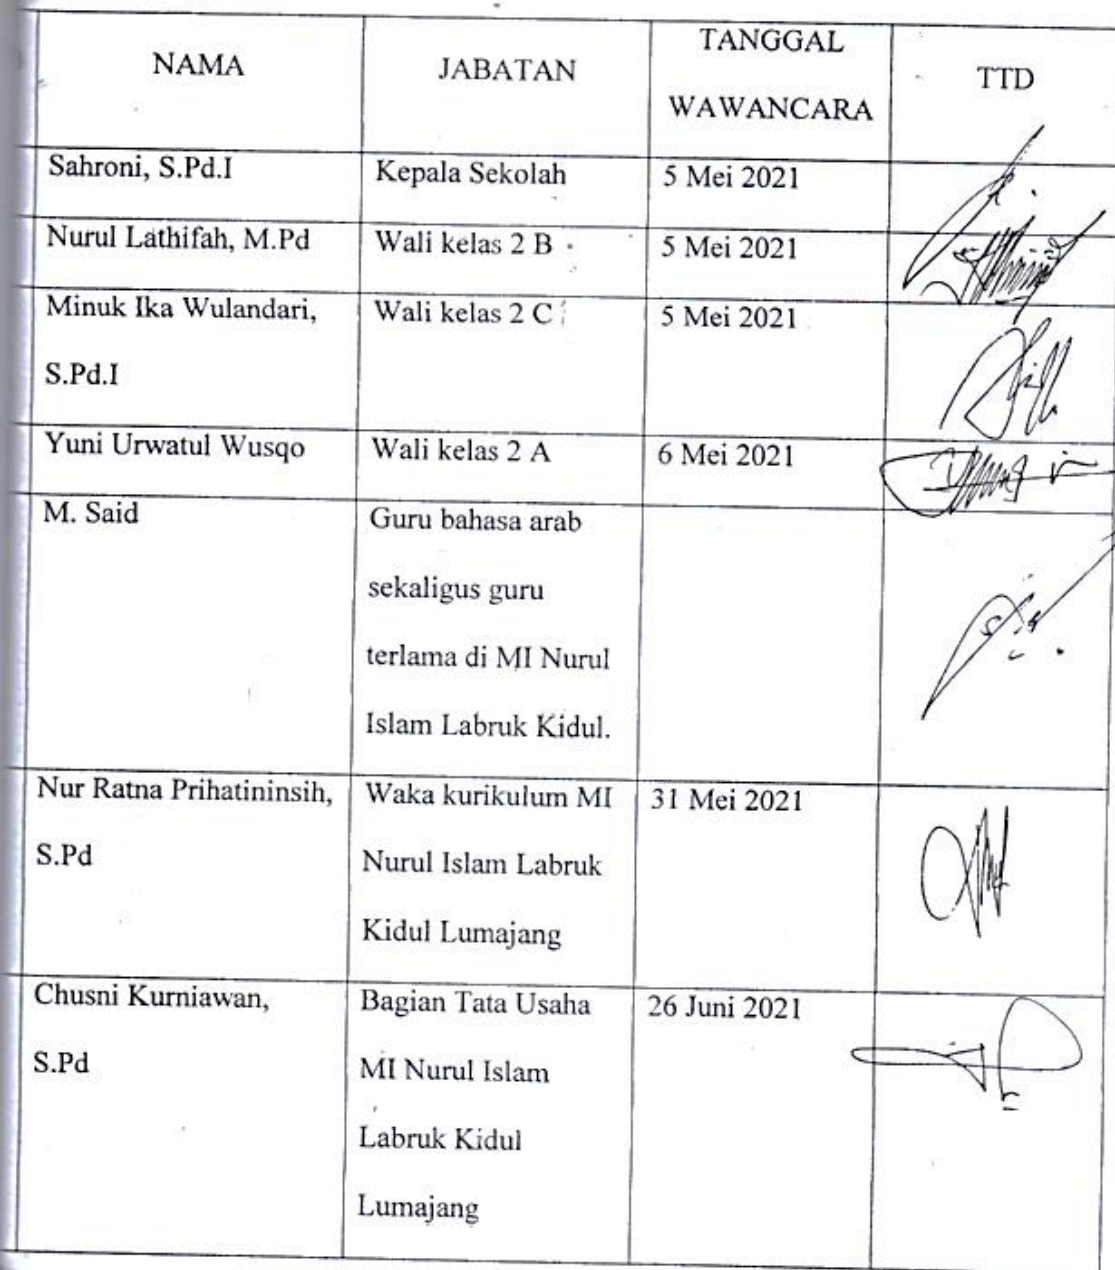 NAMA JABATAN TANGGAL WAWANCARA TTD
Sahroni, S.Pd.I Kepala Sekolah 5 Mei 2021
Nurul Lathifah, M.Pd Wali kelas 2 B 5 Mei 2021
Minuk Ika Wulandari, Wali kelas 2 C 5 Mei 2021
S.Pd.I
Yuni Urwatul Wusqo Wali kelas 2 A 6 Mei 2021
M. Said Guru bahasa arab
sekaligus guru
terlama di MI Nurul
Islam Labruk Kidul.
Nur Ratna Prihatininsih, Waka kurikulum MI 31 Mei 2021
S.Pd Nurul Islam Labruk
Kidul Lumajang
Chusni Kurniawan, Bagian Tata Usaha 26 Juni 2021
S.Pd MI Nurul Islam
Labruk Kidul
Lumajang